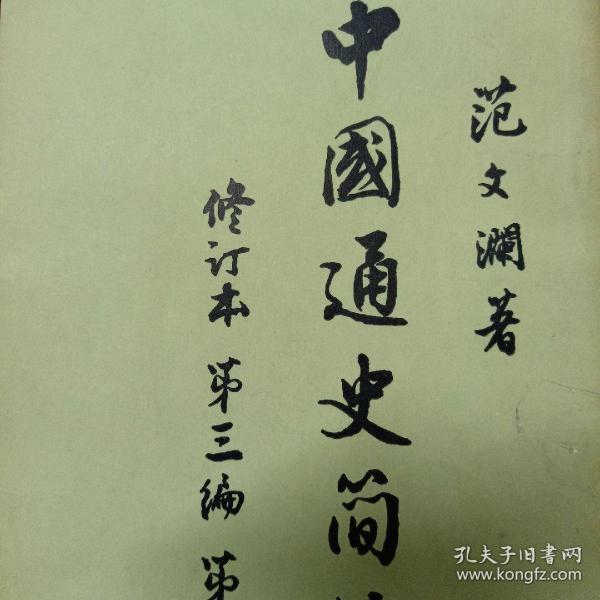 范文瀾著
中國通史简
修订本 第三编 第
孔夫子旧书网
www.kongfz.com